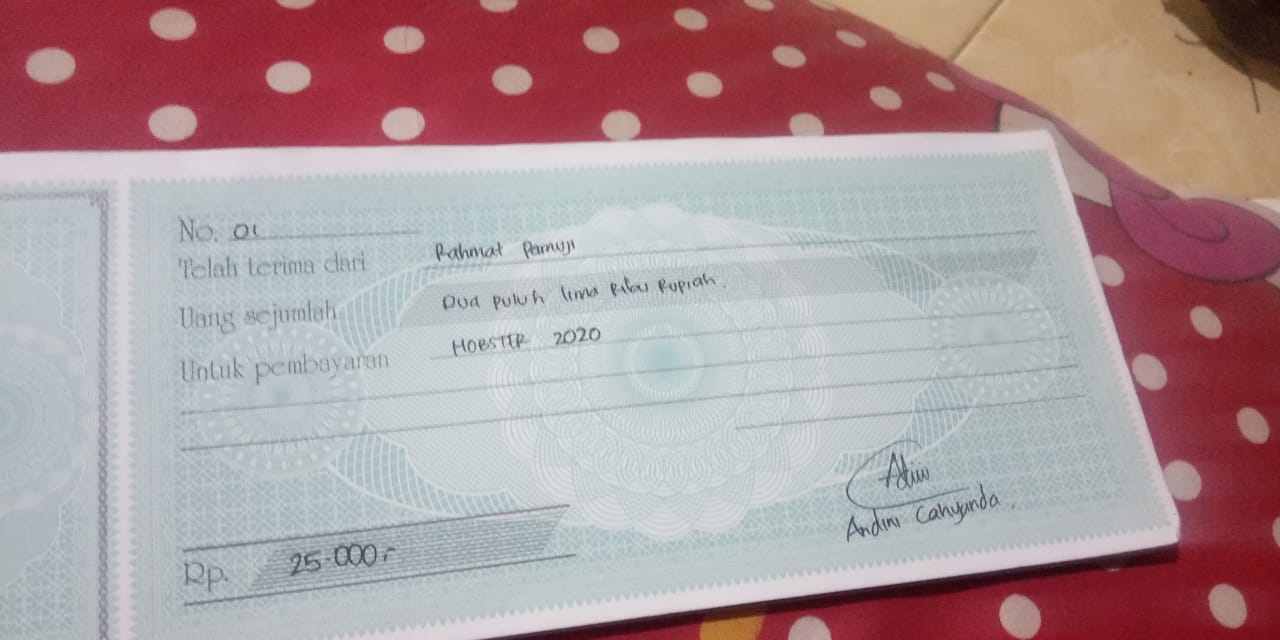 No. 01
Telah terima dari Rahmat Pamuji
Uang sejumlah Dua puluh lima Ribu Rupiah.
Untuk pembayaran HOBSTER 2020
Andini Cahyanda.
Rp. 25.000,-